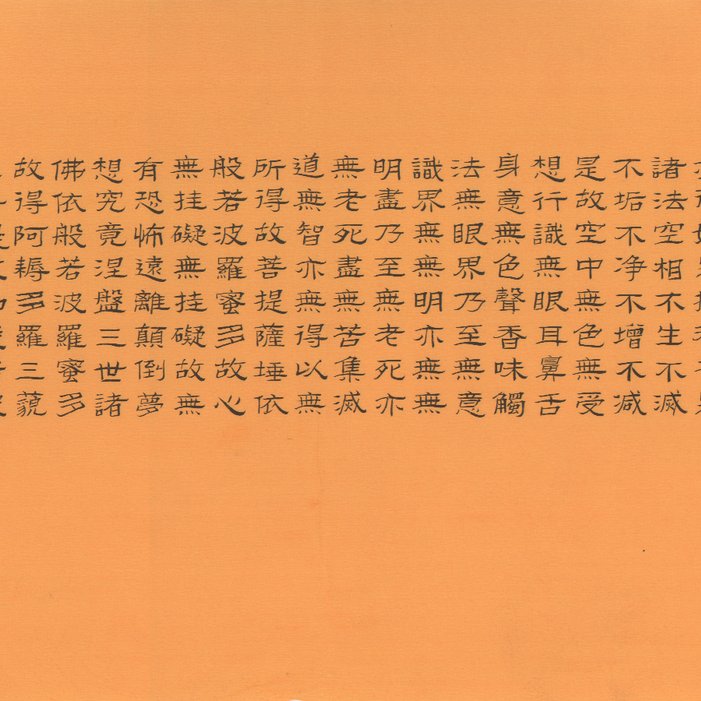 諸法空相不生不滅
不垢不净不增不减
是故空中無色無受
想行識無眼耳鼻舌
身意無色聲香味觸
法無眼界乃至無意
識界無無明亦無無
明盡乃至無老死亦
無老死盡無苦集滅
道無智亦無得以無
所得故菩提薩埵依
般若波羅蜜多故心
無挂礙無挂礙故無
有恐怖遠離顛倒夢
想究竟涅盤三世諸
佛依般若波羅蜜多
故得阿耨多羅三藐